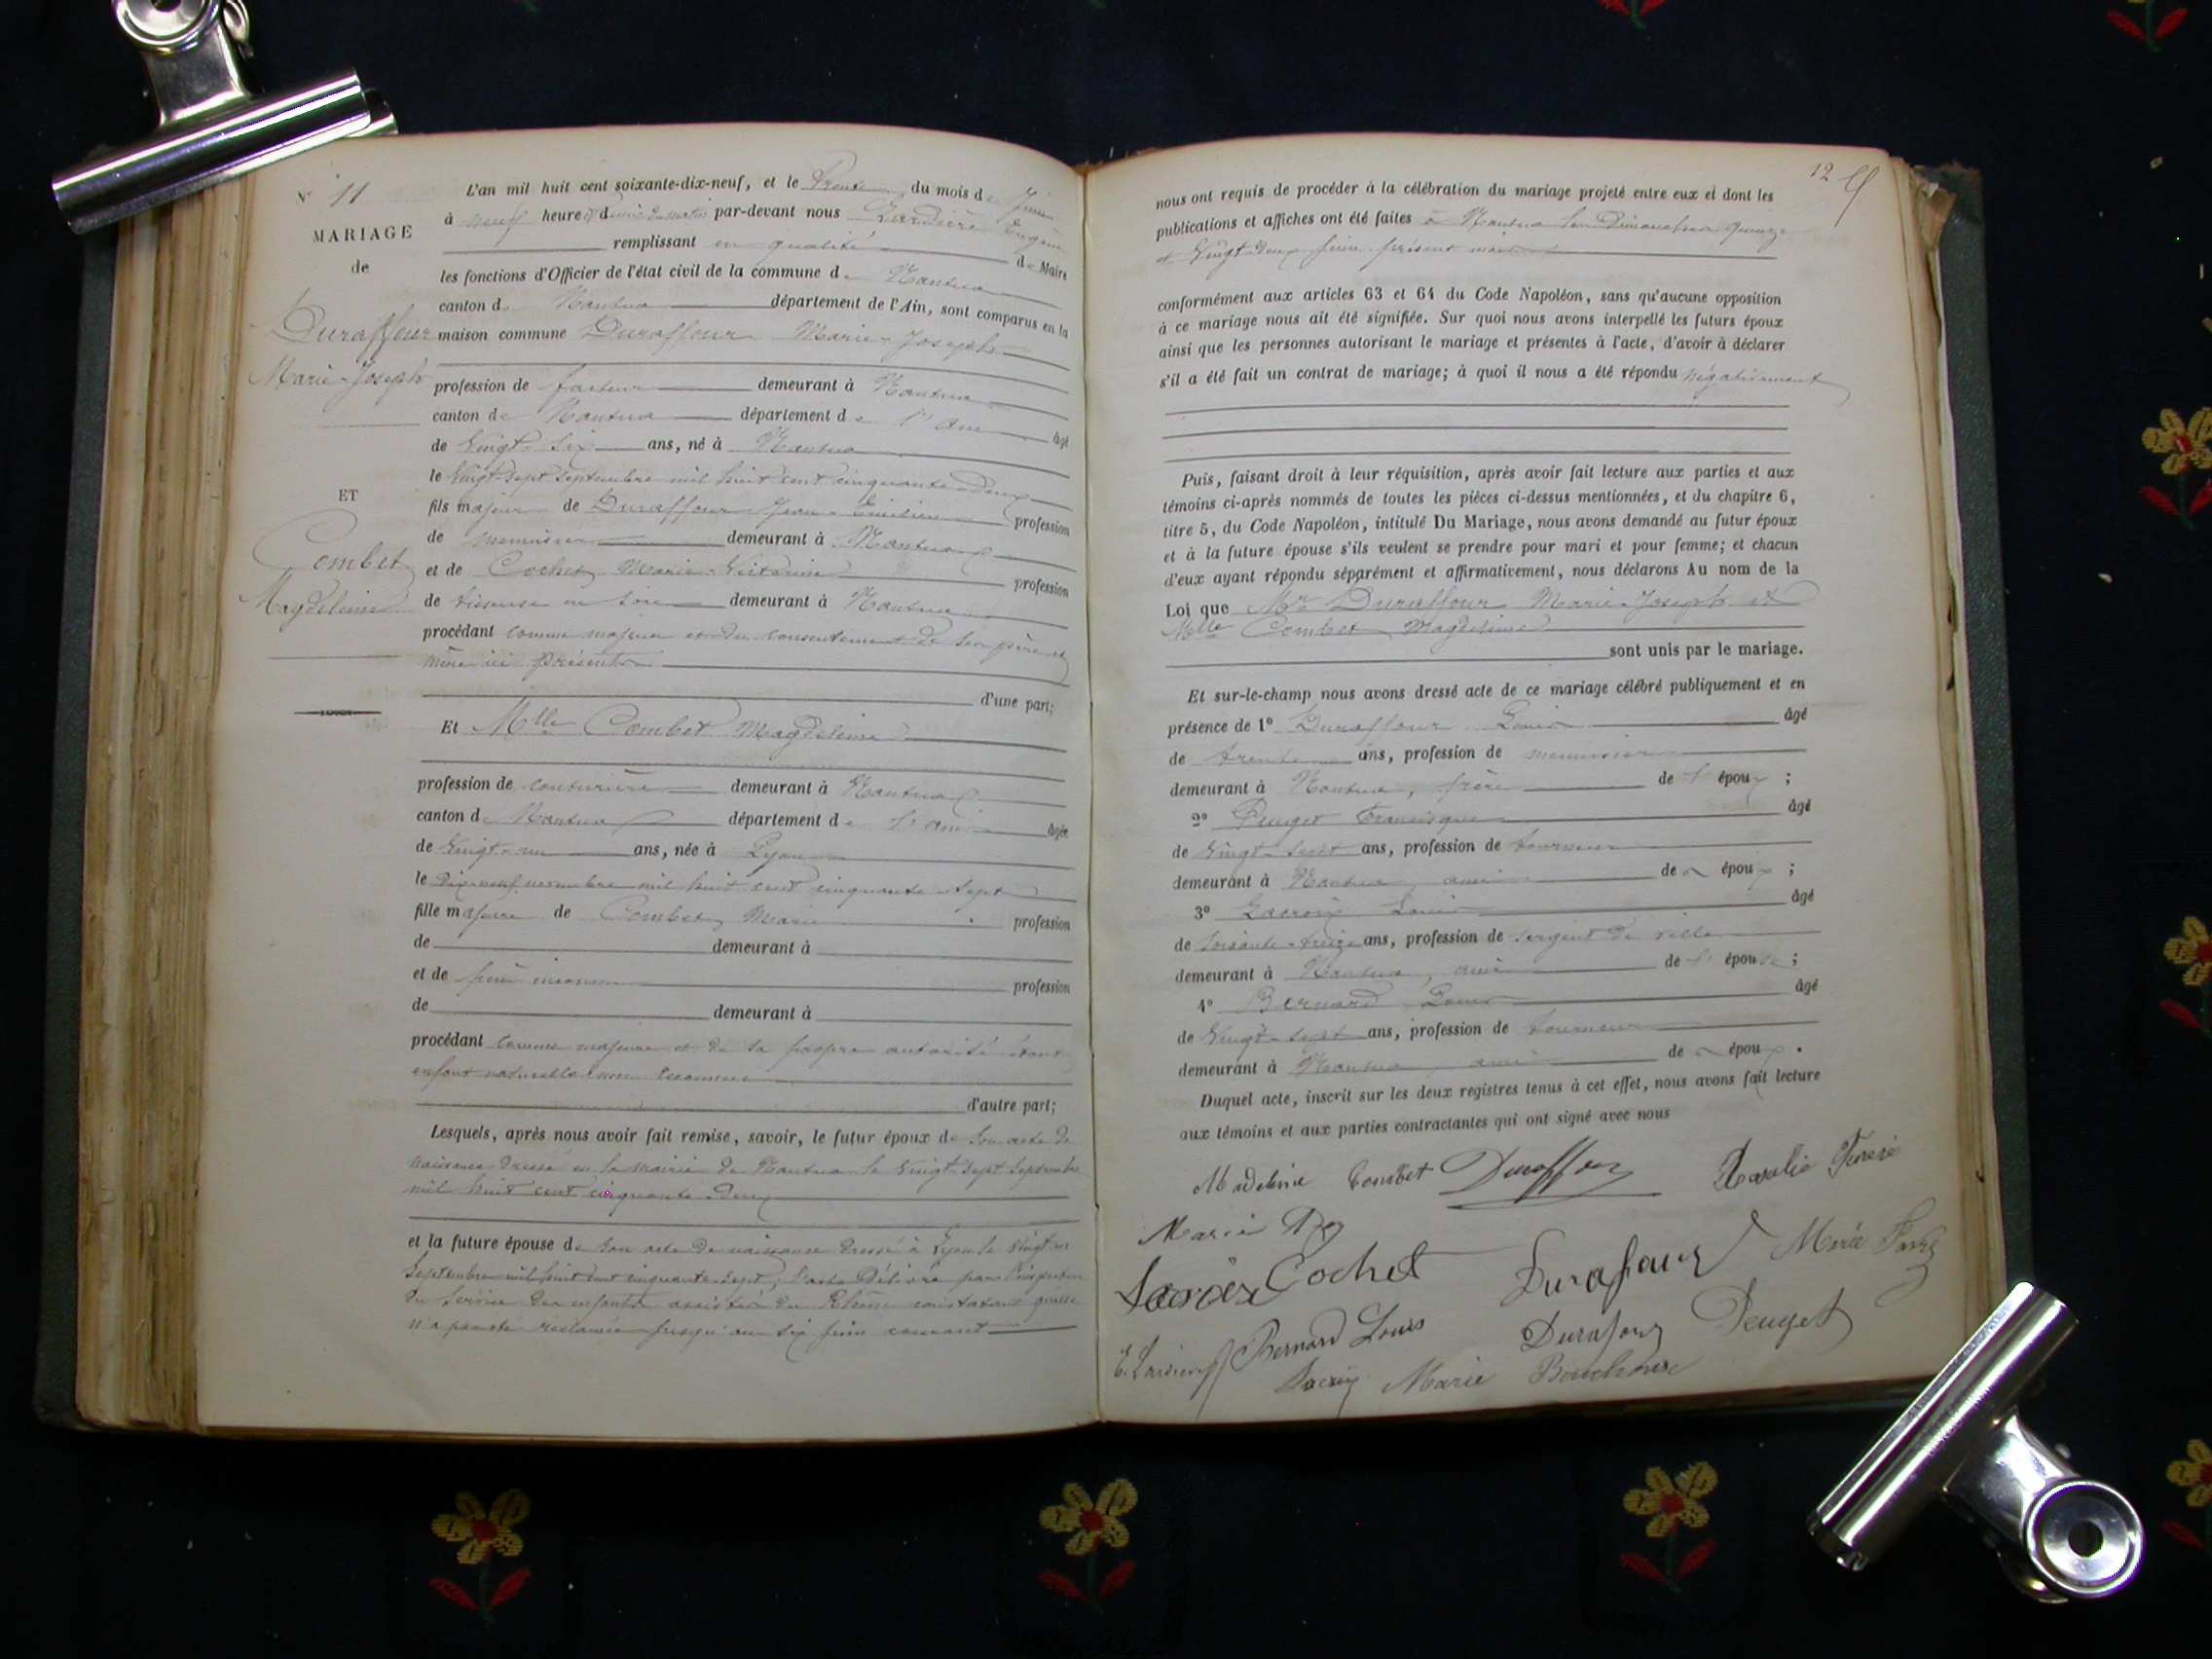 N° 11
MARIAGE
de
Duraffour
Marie-Joseph
ET
Combet
Magdeleine
L'an mil huit cent soixante-dix-neuf, et le Trente du mois de Juin
à neuf heures & demie du matin par-devant nous Lardière Eugène
remplissant en qualité de Maire
les fonctions d'Officier de l'état civil de la commune de Nantua
canton de Nantua département de l'Ain, sont comparus en la
maison commune Duraffour Marie-Joseph
profession de facteur demeurant à Nantua
canton de Nantua département de l'Ain âgé
de Vingt-six ans, né à Nantua
le Vingt-sept Septembre mil huit cent cinquante-deux
fils majeur de Duraffour Jean-Emilien profession
de menuisier demeurant à Nantua
et de Cochet Marie-Victorine profession
de tisseuse en soie demeurant à Nantua
procédant comme majeur et du consentement de ses père et
mère ici présents
d'une part;
Et Mlle Combet Magdeleine
profession de couturière demeurant à Nantua
canton de Nantua département de l'Ain âgée
de Vingt-un ans, née à Lyon
le Dix-neuf novembre mil huit cent cinquante-sept
fille majeure de Combet Marie profession
de demeurant à
et de père inconnu profession
de demeurant à
procédant comme majeure et de sa propre autorité étant
enfant naturelle non reconnue
d'autre part;
Lesquels, après nous avoir fait remise, savoir, le futur époux de son acte de
naissance dressé en la mairie de Nantua le Vingt-sept Septembre
mil huit cent cinquante-deux
et la future épouse de son acte de naissance dressé à Lyon le Vingt
Septembre mil huit cent cinquante-sept, l'acte délivré par l'inspecteur
du service des enfants assistés du Rhône constatant qu'elle
n'a pas été réclamée jusqu'au six juin courant
12
nous ont requis de procéder à la célébration du mariage projeté entre eux et dont les
publications et affiches ont été faites à Nantua les Dimanches quinze
et Vingt-deux Juin présent mois
conformément aux articles 63 et 64 du Code Napoléon, sans qu'aucune opposition
à ce mariage nous ait été signifiée. Sur quoi nous avons interpellé les futurs époux
ainsi que les personnes autorisant le mariage et présentes à l'acte, d'avoir à déclarer
s'il a été fait un contrat de mariage; à quoi il nous a été répondu négativement
Puis, faisant droit à leur réquisition, après avoir fait lecture aux parties et aux
témoins ci-après nommés de toutes les pièces ci-dessus mentionnées, et du chapitre 6,
titre 5, du Code Napoléon, intitulé Du Mariage, nous avons demandé au futur époux
et à la future épouse s'ils veulent se prendre pour mari et pour femme; et chacun
d'eux ayant répondu séparément et affirmativement, nous déclarons Au nom de la
Loi que Mr Duraffour Marie-Joseph et
Mlle Combet Magdeleine
sont unis par le mariage.
Et sur-le-champ nous avons dressé acte de ce mariage célébré publiquement et en
présence de 1° Duraffour Louis âgé
de trente ans, profession de menuisier
demeurant à Nantua, frère de l'époux ;
2° Peuget Francisque âgé
de Vingt-sept ans, profession de tourneur
demeurant à Nantua, ami de époux ;
3° Lacroix Louis âgé
de soixante-treize ans, profession de sergent de ville
demeurant à Nantua, ami de l'épouse ;
4° Bernard Louis âgé
de Vingt-sept ans, profession de Tourneur
demeurant à Nantua, ami de époux .
Duquel acte, inscrit sur les deux registres tenus à cet effet, nous avons fait lecture
aux témoins et aux parties contractantes qui ont signé avec nous
Madeleine Combet Duraffour Rosalie
Marie
Cochet Durafour Marie
Bernard Louis Durafour Peuget
Lacroix Marie